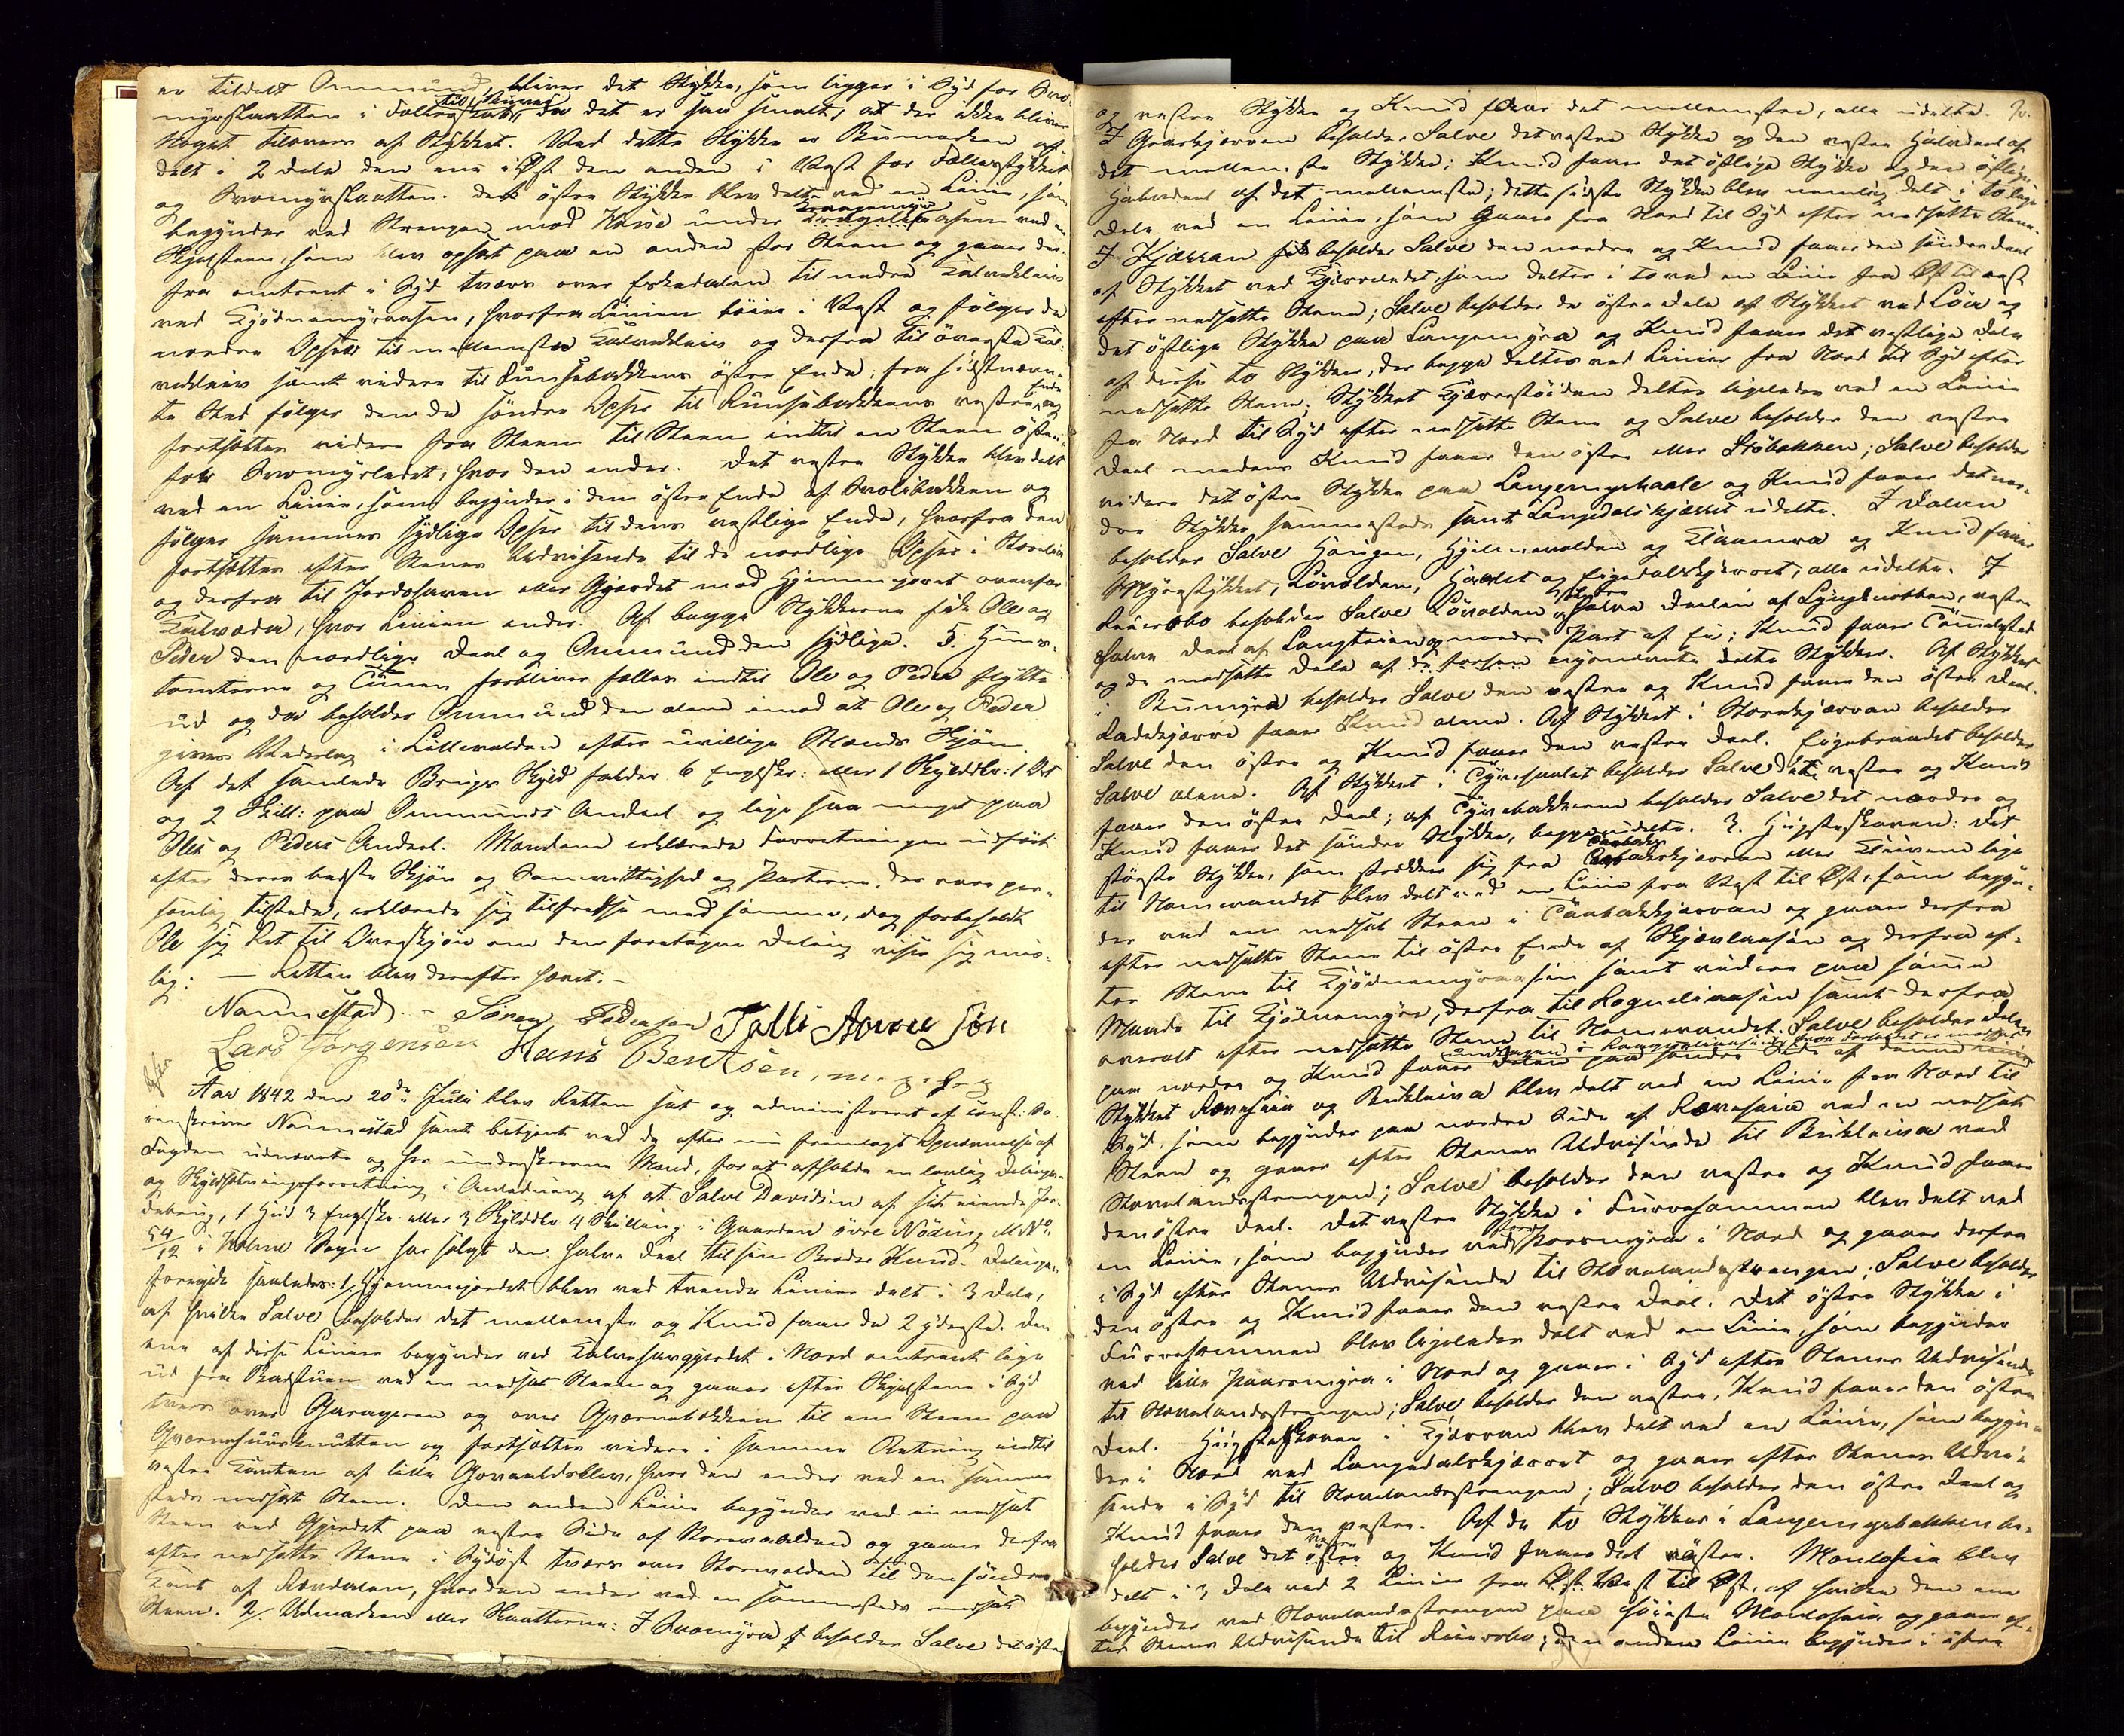 er tildelt Ommund, bliver det Stykke, som ligger i Syd for Svo-
myrslaatten i Fællesskab til Skiveret, da det er saa smalt, at der ikke bliver
Noget tilovers af Stykket. Ved dette Stykke er Bumarken af-
delt i 2 Dele den ene i Øst den anden i Vest for Fællesstykket
og Svomyrslaatten. Det østre Stykke blev delt ved en Linie, som
begynder ved Strengen mod Korse under Krogemyr aasen ved en
Skjelsteen, som blev opsat paa en anden stor Steen og gaaer der-
fra omtrent i Syd tværs over Eskedalen til nedre Kalvekleiv
ved Tjødnemyraasen, hvorfra Linien böier i Vest og følger de
nordre Opser til mellemste Kalvekleiv og derfra til øverste Kal-
vekleiv samt videre til Runsebakkens östre Ende; fra sidstnævn-
te Sted følger den de söndre Opser til Runsebakkens vestre Ende og
fortsættes videre fra Steen til Steen indtil en Steen östen-
for Svomyrledet, hvor den ender. Det vestre Stykke blev delt
ved en Linie, som begynder i den östre Ende af Svolibakken og
følger sammes sydlige Opser til dens vestlige Ende, hvorfra den
fortsættes efter Stenes Udvisende til de nordlige Opser i
og derfra til Jordehaven eller Gjerdet mod Hjemmejordet ovenfor
hvor Linien ender. Af begge Stykkerne fik Ole og
Peder den nordlige Deel og Ommund den sydlige. 5. Huus-
tomterne og Tunen forbliver fælles indtil Ole og Peder flytte
ud og da beholder Ommund den alene imod at Ole og Peder
gives Vederlag i Lillevolden efter uvillige Mænds Skjön.
Af det samlede Brugs Skyld falder 6 Englskr: eller 1 Skylddlr: 1 Ort
og 2 Skill: paa Ommunds Andeel og lige saa meget paa
Oles og Peders Andeel. Mændene erklærede Forretningen udført
efter deres bedste Skjøn og Samvittighed og Parterne, der vare per-
sonlig tilstede, erklærede sig tilfredse med samme, dog forbeholdt
Ole sig Ret til Overskjön om den foretagne Deling viser sig mis-
lig: — Retten blev derefter hævet. —
Nannestad. – Sören Pedersen Talli Aanen Sön
Lars Jörgensen Hans Bentsen, m. p. f. p
Aar 1842 den 20de Juli blev Retten sat og administreret af const. So-
renskriver Nannestad samt betjent ved de efter nu fremlagt Opnævnelse af
Fogden udnævnte og her underskrevne Mænd, for at afholde en lovlig Delings-
og Skyldsætningsforretning i Anledning af at Salve Davidsen af sit eiende Jor-
debrug, 1 Hud 3 Englsk. eller 3 Skylddlr 4 Skilling i Gaarden övre Nöding M. No.
54/12 i Holme Sogn har solgt den halve Deel til sin Broder Knud. Delingen
foregik saaledes: 1, Hjemmejordet blev ved tvende Linier delt i 3 Dele,
af hvilke Salve beholder det mellemste og Knud faaer de 2 yderste. Den
ene af disse Linier begynder ved Kalvehavegjerdet i Nord omtrent lige
ud fra Badstuen ved en nedsat Steen og gaaer efter Skjelstene i Syd
tvers over Garageren og over Qværnebækken til en Steen paa
Qværnehuusknutten og fortsættes videre i samme Retning indtil
vestre Kanten af lille hvor den ender ved en samme-
steds nedsat Steen. Den anden Linie begynder ved en nedsat
Steen ved Gjerdet paa vestre Side af Storevolden og gaaer derfra
efter nedsatte Stene i Sydöst tværs over Storevolden til den söndre
Kant af Revedalen, hvor den ender ved en sammesteds nedsat
Steen. 2/ Udmarken eller Slaatterne: I Svomyra beholder Salve det östre
og vestre Stykke og Knud faaer det mellemste, alle udelte.
I Graakjærren beholder Salve det vestre Stykke og den vestre Halvdeel af
det mellemste Stykke; Knud faaer det östlige Stykke og den östlige
Halvdeel af det mellemste; dette sidste Stykke blev nemlig delt i to lige
Dele ved en Linie, som gaaer fra Nord til Syd efter nedsatte Stene.
I Kjærran beholder Salve den nordre og Knud faaer den søndre Deel
af Stykket ved Kjærrelædet, som deltes i to ved en Linie fra Öst til Vest
efter nedsatte Stene; Salve beholder de östre Dele af Stykket ved Löia og
det östlige Stykke paa Langemyra og Knud faaer det vestlige Dele
af disse to Stykker, der begge deltes ved Linier fra Nord til Syd efter
nedsatte Stene; Stykket Kjærrestöiden deltes ligeledes ved en Linie
fra Nord til Syd efter nedsatte Stene og Salve beholder den vestre
Deel medens Knud faaer den östre eller Stöbakken; Salve beholder
videre det östre Stykke paa Langemyrhaale og Knud faaer det nor-
dre Stykke sammesteds samt Langedalskjærret udelte. I Dalen
beholder Salve Haugen, Hjelmevolden og og Knud faaer
Myrestykket, Lövolden, og Eigedalskjærret, alle udelte. I
Leiersbo beholder Salve Lövolden og halve Deelen af Lyngknobben, vestre
halve Deel af Langteien og nordre Part af Ei; Knud faaer
og de modsatte Dele af de nysnævnte delte Stykker. Af Stykket
i Bumyra beholder Salve den vestre og Knud faaer den östre Deel.
Ladekjærre faaer Knud alene. Af Stykket i Storekjærran beholder
Salve den östre og Knud faaer den vestre Deel. Eigebrændet beholder
Salve alene. Af Stykket i beholder Salve det vestre og Knud
faaer den östre Deel; af beholder Salve det nordre og
Knud faaer det söndre Stykke, begge udelte. 3. Hugsteskoven: det
störste Stykke, som strækker sig fra Taabækkjærran eller Kleivene lige
til Homevandet blev delt ved en Linie fra Vest til Øst, som begyn-
der ved en nedsat Steen i Taabækkjærran og gaaer derfra
efter nedsatte Stene til östre Ende af Skjævlaasen og derfra ef-
ter Stene til Tjödnemyraasen samt videre paa samme
Maade til Tjödnemyra, derfra til samt derfra
overalt efter nedsatte Stene til Homevandet. Salve beholder Delen
paa nordre og Knud faaer Delen paa söndre Side af denne Linie
Stykket Ræveheia og Bukleiva blev delt ved en Linie fra Nord til
Syd, som begynder paa nordre Side af Ræveheia ved en nedsat
Steen og gaaer efter Stenes Udvisende til Bukleiva ved
Stovelandsstrengen; Salve beholder den vestre og Knud faaer
den östre Deel. Det vestre Stykke i Furrehommen blev delt ved
en Linie, som begynder ved store Porsmyra i Nord og gaaer derfra
i Syd efter Stenes Udvisende til Stovelandsstrengen; Salve beholder
den östre og Knud faaer den vestre Deel. Det östre Stykke i
Furrehommen blev ligeledes delt ved en Linie, som begynder
ved lille Paarsmyra i Nord og gaaer i Syd efter Stenes Udvisende
til Stovelandsstrengen; Salve beholder den vestre, Knud faaer den östre
Deel. Hugsteskoven i Kjærran blev delt ved en Linie, som begyn-
der i Nord ved Langedalskjærret og gaaer efter Stenes Udvi-
sende i Syd til Stovelandsstrengen; Salve beholder den östre Deel og
Knud faaer den vestre. Af de to Stykker i Langemyrbakken be-
holder Salve det vestre og Knud faaer det östre. blev
delt i 3 Dele ved 2 Linier fra Vest til Öst, af hvilke den ene
begynder ved Stovelandsstrengen paa höieste og gaaer ef-
ter Stenes Udvisende til Leiersbo; den anden Linie begynder i östre